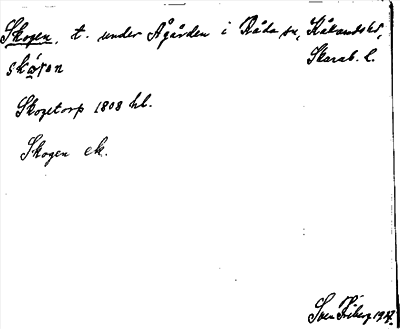 Skogen, t. under Ågården i Råda sn, Kålandshd,
Skarab. l.
skογεn
Skogetorp 1808 hl.
Skogen ek.
Sven Friberg